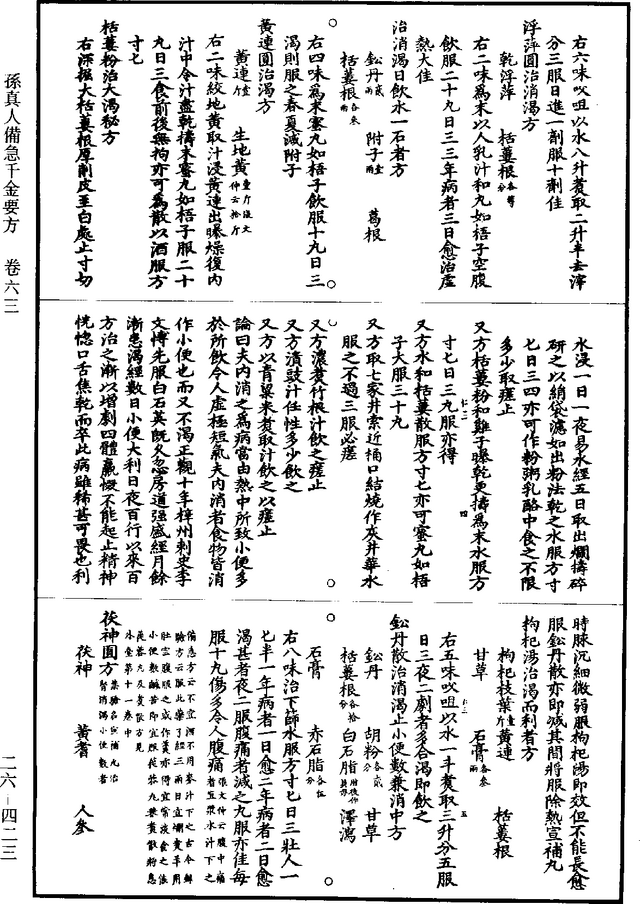 右六味㕮咀以水八升煑取二升半去滓
分三服日進一劑服十劑佳
浮萍圓治消渴方
乾浮萍 栝蔞根各等分
右二味爲末以人乳汁和丸如梧子空腹
飲服二十丸日三三年病者三日愈治虛
熱大佳
治消渴日飲水一石者方
鈆丹貳兩 附子壹兩 葛根
栝蔞根各叁兩
右四味爲末蜜丸如梧子飲服十丸日三
渴則服之春夏減附子
黃連圓治渴方
黃連壹斤 生地黃壹斤張文仲云拾斤
右二味絞地黃取汁浸黃連出曝燥復内
汁中令汁盡乾擣末蜜丸如梧子服二十
丸日三食前後無拘亦可爲散以酒服方
寸七
栝蔞粉治大渴秘方
右深掘大栝蔞根厚削皮至白處止寸切
水浸一日一夜易水經五日取出爛擣碎
研之以絹袋濾如出粉法乾之水服方寸
七日三四亦可作粉粥乳酪中食之不限
多少取瘥止
又方栝蔞粉和雞子曝乾更擣爲末水服方
寸七日三丸服亦得
又方水和栝蔞散服方寸七亦可蜜丸如梧
子大服三十丸
又方取七家井索近桶口結燒作灰井華水
服之不過三服必瘥
又方濃煑竹根汁飲之瘥止
又方漬豉汁任性多少飲之
又方以青粱米煑取汁飲之以瘥止
論曰夫内消之爲病當由熱中所致小便多
於所飲令人虛極短氣夫内消者食物皆消
作小便也而又不渴正觀十年梓州刺史李
文博先服白石英旣久忽房道强盛經月餘
漸患渴經數日小便大利日夜百行以來百
方治之漸以增劇四體羸惙不能起止精神
恍惚口舌焦乾而卒此病雖稀甚可畏也利
時脉沉細微弱服枸杞湯即效但不能長愈
服鈆丹散亦即減其間將服除熱宣補丸
枸杞湯治渴而利者方
枸杞枝葉壹斤 黃連 栝蔞根
甘草 石膏各叁兩
右五味㕮咀以水一斗煑取三升分五服
日三夜二劇者多合渴即飲之
鈆丹散治消渴止小便數兼消中方
鈆丹 胡粉各貳分 甘草
栝蔞根各拾分 白石脂 澤瀉
石膏 赤石脂各伍分
右八味治下篩水服方寸七日三壯人一
七半一年病者一日愈二年病者二日愈
渴甚者夜二服腹痛者減之丸服亦佳每
服十丸傷多令人腹痛張文仲云腹中痛者宜漿水汁下之
備急方云不宜酒下用麥汁下之古今録
驗方云服此藥了經三兩日宜爛煑羊肝
肚空腹服之或作羹亦得宜湯淡食之候
小便數鹹苦即宜服蓯蓉丸兼煑散將息
蓯蓉丸及煑散方見
外臺第十一卷中
茯神圓方集驗名宣補丸治腎消渴小便數者
茯神 黃耆 人參
孫真人備急千金要方 卷六三
二六-四二三